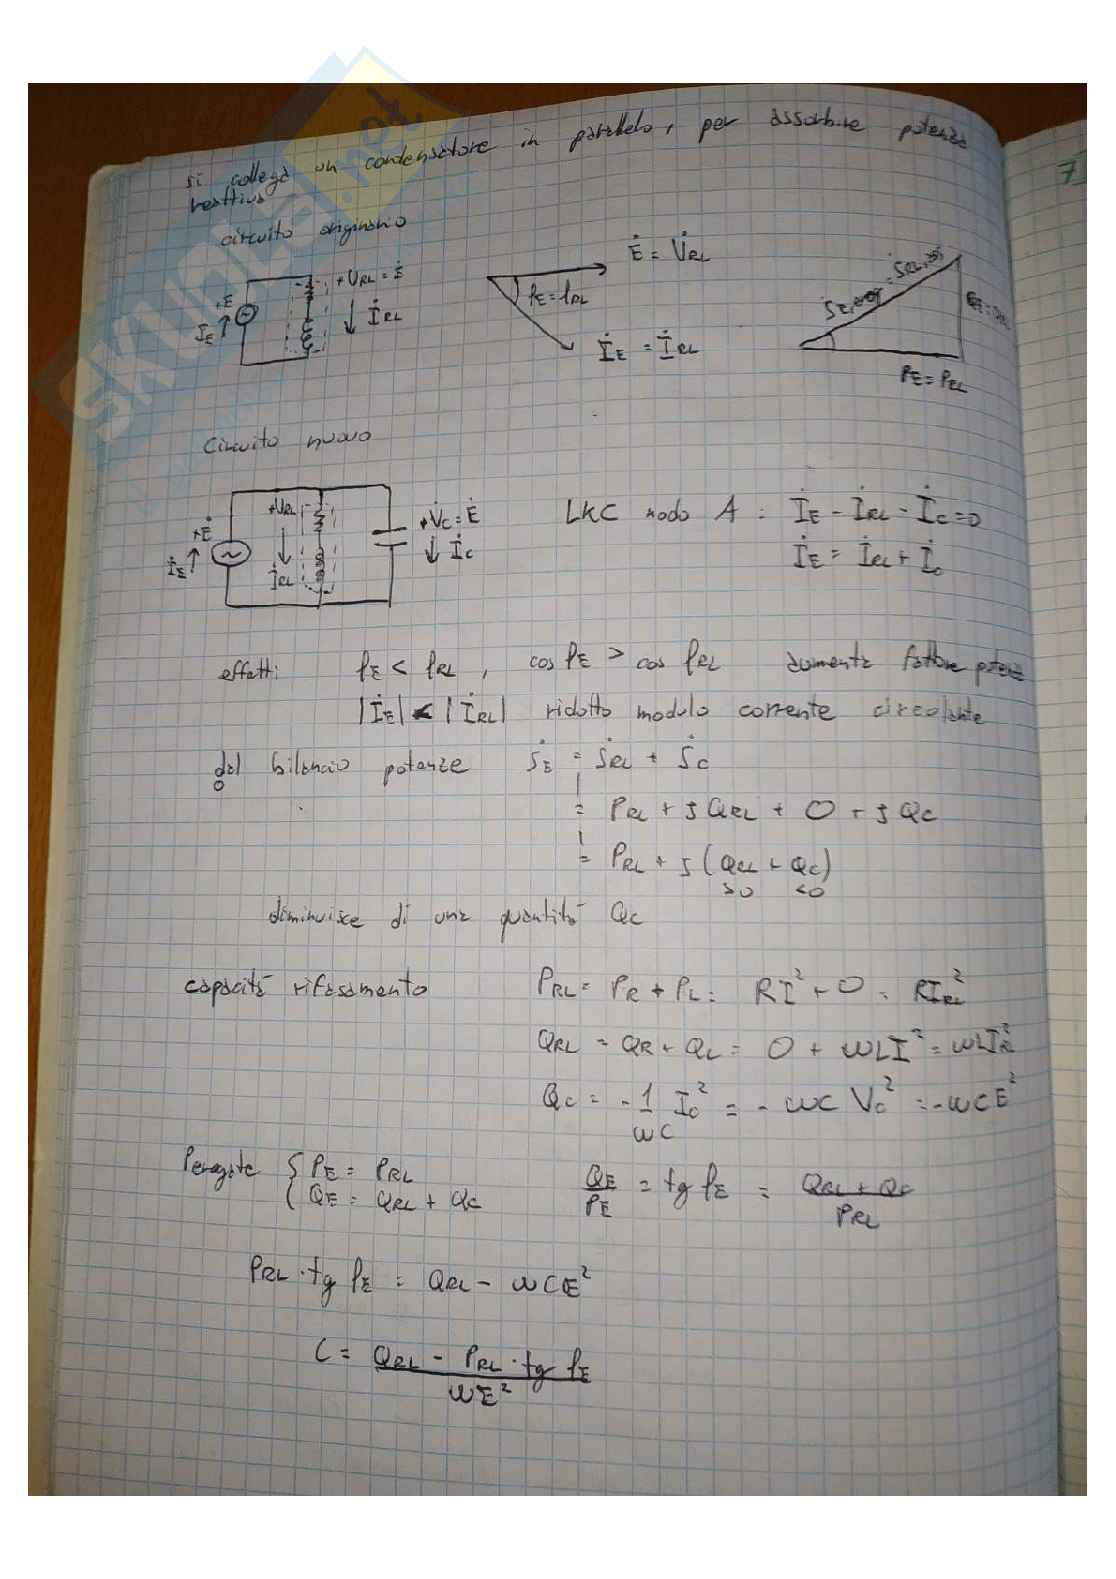 si collega un condensatore in parallelo, per assorbire potenza
reattiva
circuito originario
+E
İE
+VRL = Ė
İRL
Ė = V̇RL
φE = φRL
İE = İRL
PE = PRL
Circuito nuovo
+Ė
İE
+VRL
İRL
+V̇C = Ė
İC
LKC nodo A : İE - İRL - İC = 0
İE = İRL + İC
effetti φE < φRL , cos φE > cos φRL aumenta fattore potenz
|İE| < |İRL| ridotto modulo corrente circolante
dal bilancio potenze ṠE = ṠRL + ṠC
= PRL + j QRL + 0 + j QC
= PRL + j (QRL + QC)
>0 <0
diminuisce di una quantità QC
capacità rifasamento PRL = PR + PL = RI² + 0 = RIRL²
QRL = QR + QL = 0 + ωLI² = ωLIRL²
QC = - 1/ωC IC² = - ωC VC² = -ωCE²
{ PE = PRL
QE = QRL + QC
QE/PE = tg φE = QRL + QC / PRL
PRL · tg φE = QRL - ωCE²
C = QRL - PRL · tg φE / ωE²
7
SKUOLA.net